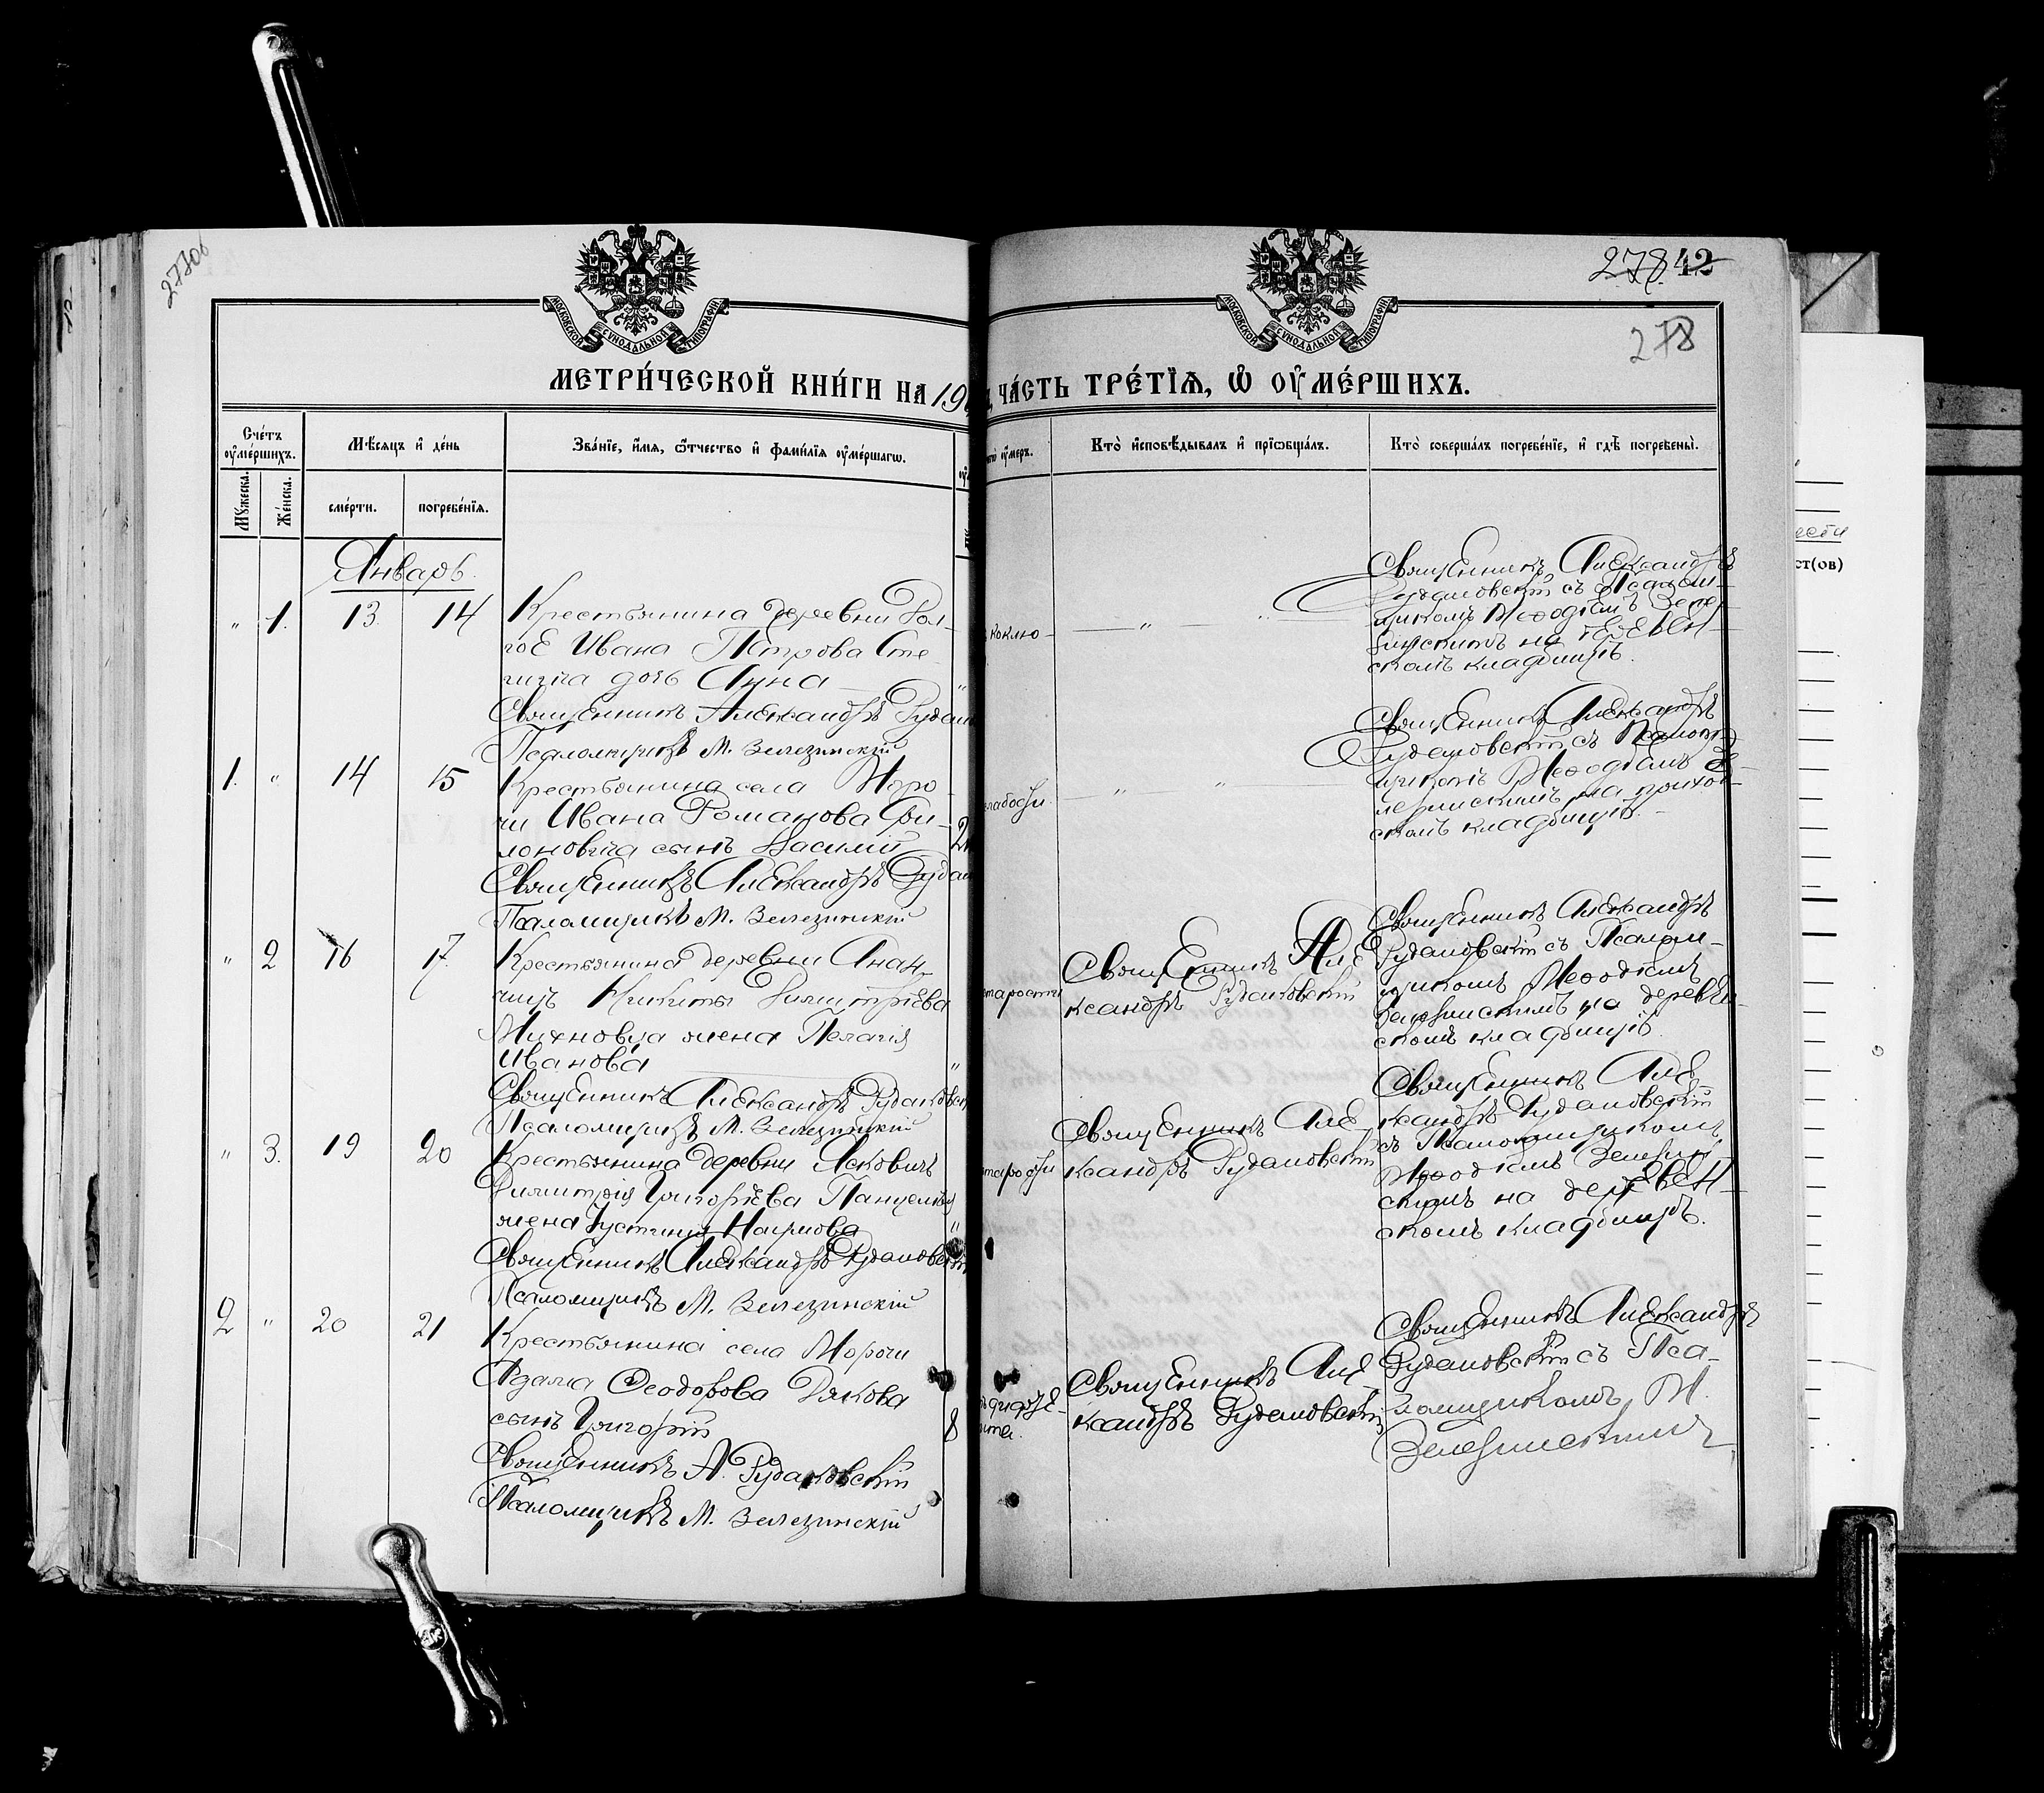 277об
278 42
278
МОСКОВСКОЙ СѴНОДАЛЬНОЙ ТИПОГРАФІИ
МОСКОВСКОЙ СѴНОДАЛЬНОЙ ТИПОГРАФІИ
МЕТРИ́ЧЕСКОЙ КНИ́ГИ НА 19
ЧА́СТЬ ТРЕ́ТІѦ, Ѡ҆ ОУ҆МЕ́РШИХЪ.
Сче́тъ оу҆ме́ршихъ.
Мѣ́сѧцъ и҆ де́нь
Зва́нїе, и҆́мѧ, ѻ҆́тчество и҆ фами́лїѧ оу҆ме́ршагѡ.
оу҆ме́ръ.
Кто̀ и҆сповѣ́дывалъ и҆ прїѡбща́лъ.
Кто̀ соверша́лъ погребе́нїе, и҆ гдѣ̀ погребены̀.
Мꙋ́жеска.
Же́нска.
сме́рти.
погребе́нїѧ.
Январь.
" 1. 13. 14
Крестьянина деревни Дол-
гое Ивана Петрова Сте
дочь Анна
Священникъ Александръ Рудак
Псаломщикъ М. Зелезинскій
коклю-
"
Священникъ Александръ
Рудаковскій съ Псалом-
щикомъ Меѳодіемъ Зеле-
зинскимъ на деревен-
скомъ кладбищѣ.
1. " 14 15
Крестьянина села Моро-
чи Ивана Романова Фи-
лоновича сынъ Василій
Священникъ Александръ Рудак
Псаломщикъ М. Зелезинскій
слабости
" "
Священникъ Александръ
Рудаковскій съ Псалом-
щикомъ Меѳодіемъ Зе-
лезинскимъ на приход-
скомъ кладбищѣ.
" 2 16 17.
Крестьянина деревни Анан-
чицъ Никиты Димитріева
Михновца жена Пелагія
Иванова
Священникъ Александръ Рудаковск
Псаломщикъ М. Зелезинскій
старости
Священникъ Але
ксандръ Рудаковскій
Священникъ Александръ
Рудаковскій съ Псалом-
щикомъ Меѳодіемъ
Зелезинскимъ на деревен-
скомъ кладбищѣ.
" 3. 19 20
Крестьянина деревни Ясковичъ
Димитрія Григоріева
жена Іустинія Наумова
Священникъ Александръ Рудаковскій
Псаломщикъ М. Зелезинскій
старости
Священникъ Але
ксандръ Рудаковскій
Священникъ Але-
ксандръ Рудаковскій
съ Псаломщикомъ
Меѳодіемъ Зелезин-
скимъ на деревен-
скомъ кладбищѣ.
2 " 20 21
Крестьянина села Морочи
Адама Ѳеодорова Дякова
сынъ Григорій
8
Священникъ А. Рудаковскій
Псаломщикъ М. Зелезинскій
Священникъ Але
ксандръ Рудаковскій
Священникъ Александръ
Рудаковскій съ Пса-
ломщикомъ М.
Зелезинскимъ
ст(ов)